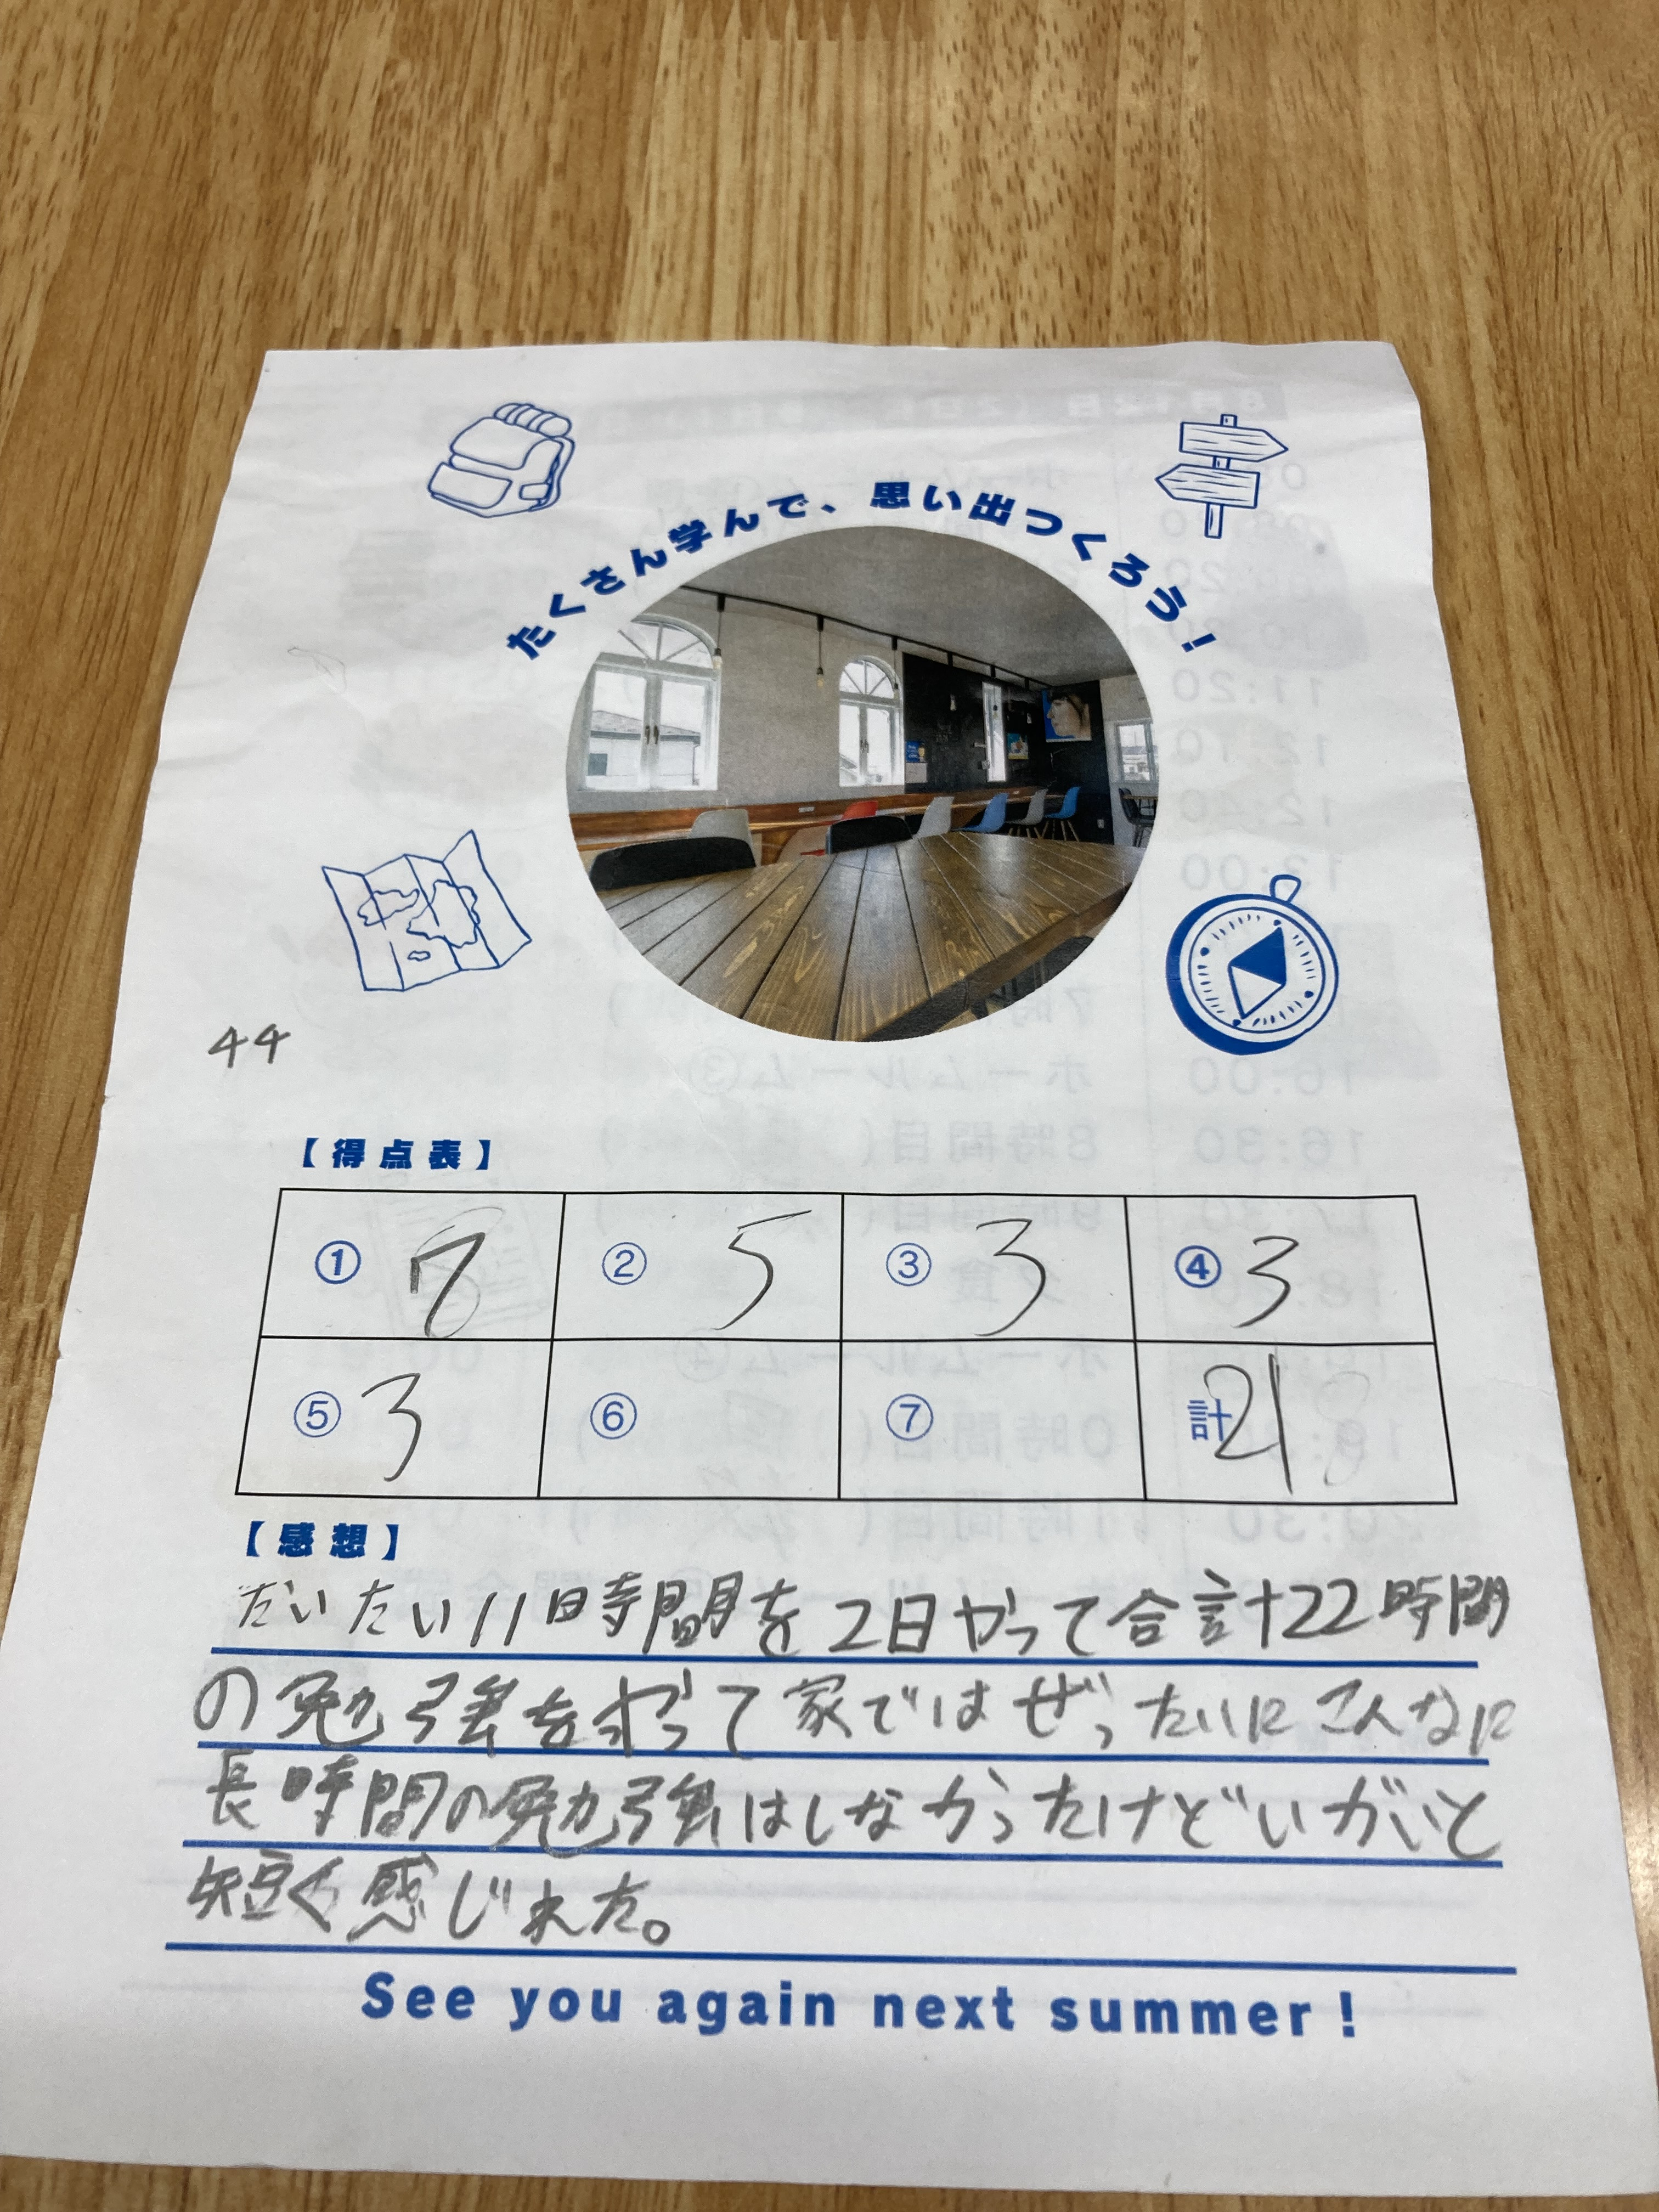 たくさん学んで、思い出つくろう！
44
【得点表】
① 7 ② 5 ③ 3 ④ 3
⑤ 3 ⑥ ⑦ 計 21
【感想】
だいたい11時間を2日やって合計22時間
の勉強をやって家ではぜったいにこんなに
長時間の勉強はしなかったけどいがいと
短く感じれた。
See you again next summer！